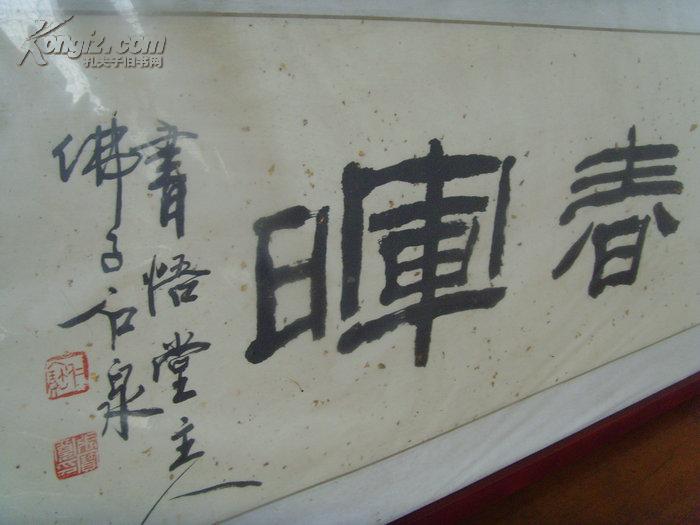 春暉
書悟堂主人
佛子石泉
Kongfz.com
孔夫子旧书网